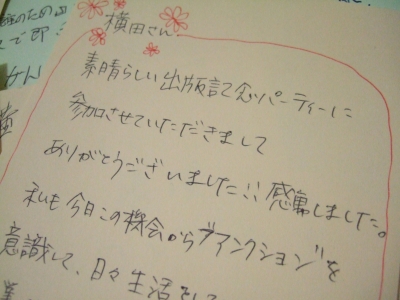 横田さん
素晴らしい出版記念パーティーに
参加させていただきまして
ありがとうございました!! 感動しました。
私も今日この機会から"アンクション"を
意識して、日々生活をし